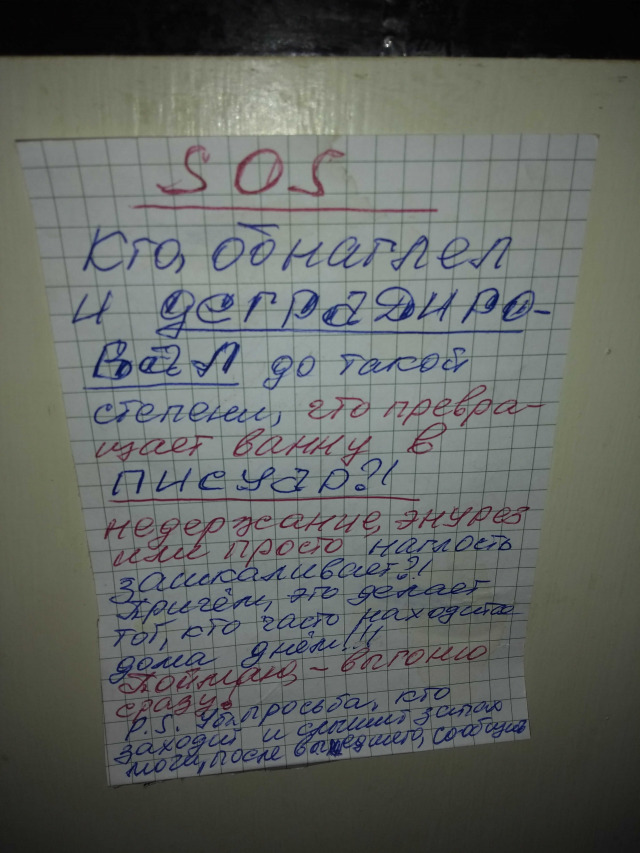 SOS
Кто, обнаглел
и деградиро-
вал до такой
степени, что превра-
щает ванну в
писуар?!
недержание, энурез
или просто наглость
зашкаливает?!
Причём, это делает
тот, кто часто находится
дома днём!!!
Поймаю - выгоню
сразу.
P.S. просьба, кто
заходит и слышит запах
мочи, после вышедшего, сообщите